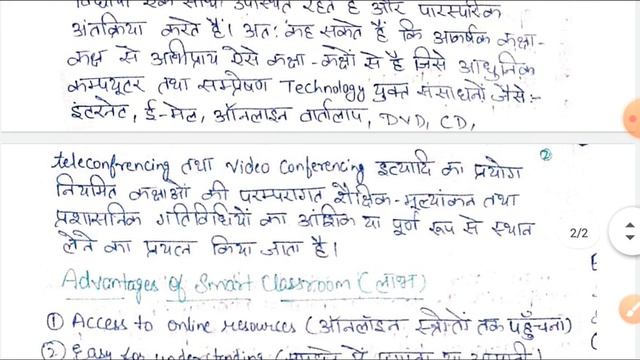 विद्यार्थी एक साथ उपस्थित रहते हैं और पारस्परिक
अंतक्रिया करते हैं। अतः कह सकते हैं कि आकर्षक कक्षा-
कक्ष से अभिप्राय ऐसे कक्षा-कक्षों से है जिसे आधुनिक
कम्प्यूटर तथा सम्प्रेषण Technology युक्त संसाधनों जैसे:-
इंटरनेट, ई-मेल, ऑनलाइन वार्तालाप, DVD, CD,
②
teleconfrencing तथा Video Conferencing इत्यादि का प्रयोग
नियमित कक्षाओं की परम्परागत शैक्षिक-मूल्यांकन तथा
प्रशासनिक गतिविधियों का आंशिक या पूर्ण रूप से स्थान
लेने का प्रयत्न किया जाता है।
2/2
Advantages of Smart Classroom (लाभ)
① Access to online resources (ऑनलाइन स्त्रोतों तक पहुँचना)
② Easy for understanding